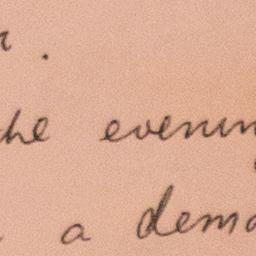 .
the evenin
a dema